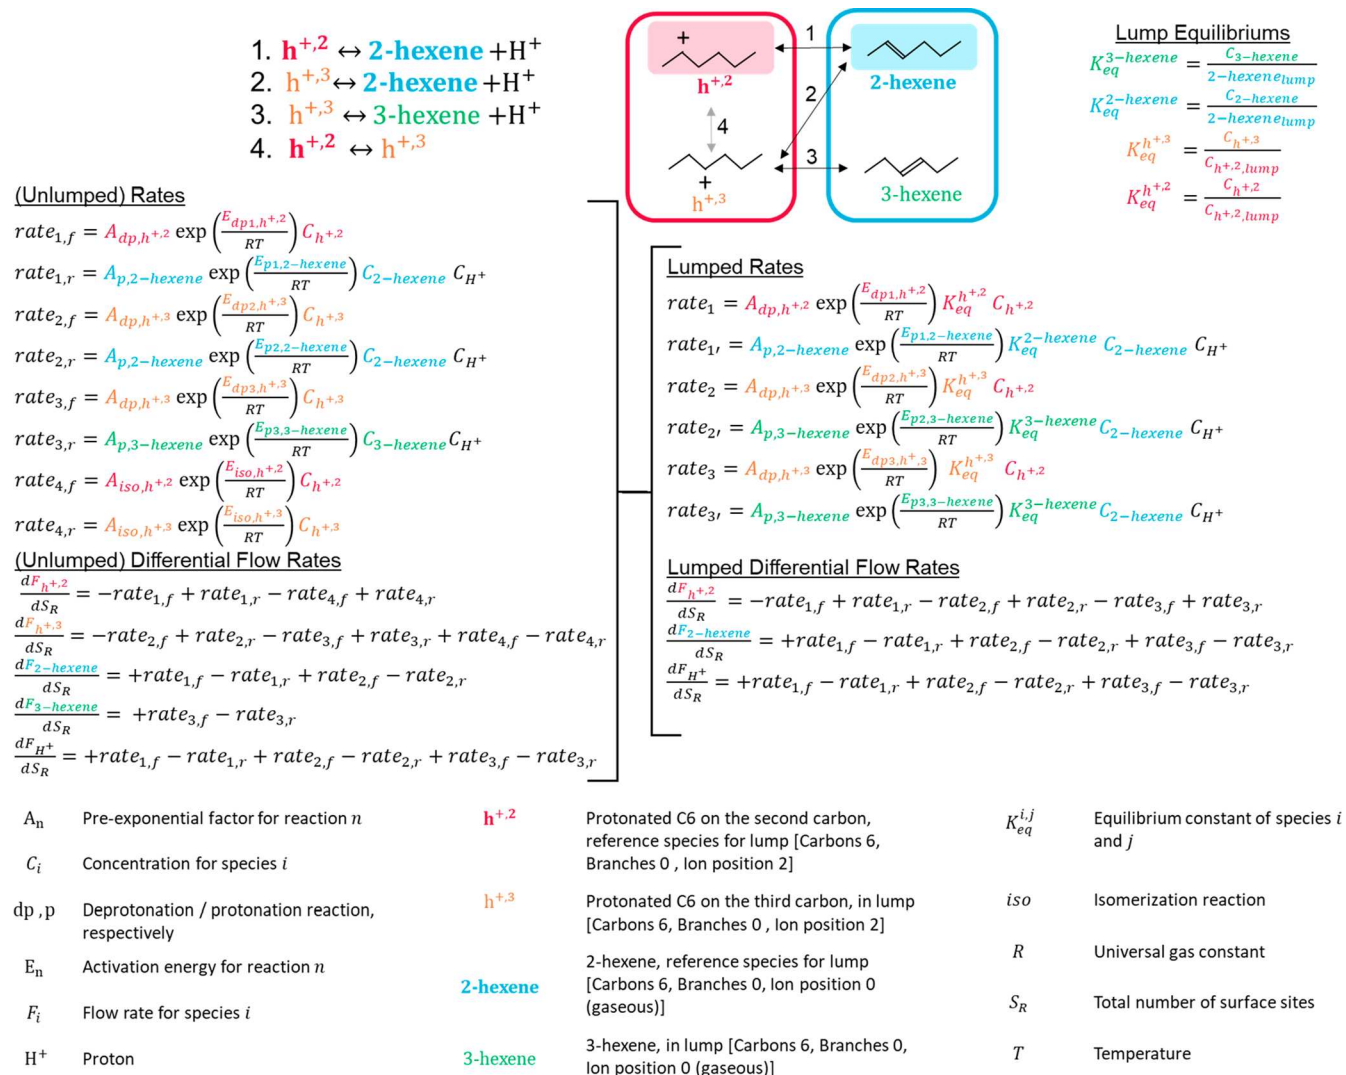 1. h⁺,² ↔ 2-hexene +H⁺
2. h⁺,³ ↔ 2-hexene +H⁺
3. h⁺,³ ↔ 3-hexene +H⁺
4. h⁺,² ↔ h⁺,³
+
h⁺,²
1
2-hexene
2
4
3
+
h⁺,³
3-hexene
Lump Equilibriums
K_{eq}^{3-hexene} = \frac{C_{3-hexene}}{2-hexene_{lump}}
K_{eq}^{2-hexene} = \frac{C_{2-hexene}}{2-hexene_{lump}}
K_{eq}^{h^{+,3}} = \frac{C_{h^{+,3}}}{C_{h^{+,2},lump}}
K_{eq}^{h^{+,2}} = \frac{C_{h^{+,2}}}{C_{h^{+,2},lump}}
(Unlumped) Rates
rate_{1,f} = A_{dp,h^{+,2}} exp(\frac{E_{dp1,h^{+,2}}}{RT}) C_{h^{+,2}}
rate_{1,r} = A_{p,2-hexene} exp(\frac{E_{p1,2-hexene}}{RT}) C_{2-hexene} C_{H^+}
rate_{2,f} = A_{dp,h^{+,3}} exp(\frac{E_{dp2,h^{+,3}}}{RT}) C_{h^{+,3}}
rate_{2,r} = A_{p,2-hexene} exp(\frac{E_{p2,2-hexene}}{RT}) C_{2-hexene} C_{H^+}
rate_{3,f} = A_{dp,h^{+,3}} exp(\frac{E_{dp3,h^{+,3}}}{RT}) C_{h^{+,3}}
rate_{3,r} = A_{p,3-hexene} exp(\frac{E_{p3,3-hexene}}{RT}) C_{3-hexene} C_{H^+}
rate_{4,f} = A_{iso,h^{+,2}} exp(\frac{E_{iso,h^{+,2}}}{RT}) C_{h^{+,2}}
rate_{4,r} = A_{iso,h^{+,3}} exp(\frac{E_{iso,h^{+,3}}}{RT}) C_{h^{+,3}}
(Unlumped) Differential Flow Rates
\frac{dF_{h^{+,2}}}{dS_R} = −rate_{1,f} + rate_{1,r} − rate_{4,f} + rate_{4,r}
\frac{dF_{h^{+,3}}}{dS_R} = −rate_{2,f} + rate_{2,r} − rate_{3,f} + rate_{3,r} + rate_{4,f} − rate_{4,r}
\frac{dF_{2-hexene}}{dS_R} = +rate_{1,f} − rate_{1,r} + rate_{2,f} − rate_{2,r}
\frac{dF_{3-hexene}}{dS_R} = +rate_{3,f} − rate_{3,r}
\frac{dF_{H^+}}{dS_R} = +rate_{1,f} − rate_{1,r} + rate_{2,f} − rate_{2,r} + rate_{3,f} − rate_{3,r}
Lumped Rates
rate_1 = A_{dp,h^{+,2}} exp(\frac{E_{dp1,h^{+,2}}}{RT}) K_{eq}^{h^{+,2}} C_{h^{+,2}}
rate_{1′} = A_{p,2-hexene} exp(\frac{E_{p1,2-hexene}}{RT}) K_{eq}^{2-hexene} C_{2-hexene} C_{H^+}
rate_2 = A_{dp,h^{+,3}} exp(\frac{E_{dp2,h^{+,3}}}{RT}) K_{eq}^{h^{+,3}} C_{h^{+,2}}
rate_{2′} = A_{p,3-hexene} exp(\frac{E_{p2,3-hexene}}{RT}) K_{eq}^{3-hexene} C_{2-hexene} C_{H^+}
rate_3 = A_{dp,h^{+,3}} exp(\frac{E_{dp3,h^{+,3}}}{RT}) K_{eq}^{h^{+,3}} C_{h^{+,2}}
rate_{3′} = A_{p,3-hexene} exp(\frac{E_{p3,3-hexene}}{RT}) K_{eq}^{3-hexene} C_{2-hexene} C_{H^+}
Lumped Differential Flow Rates
\frac{dF_{h^{+,2}}}{dS_R} = −rate_{1,f} + rate_{1,r} − rate_{2,f} + rate_{2,r} − rate_{3,f} + rate_{3,r}
\frac{dF_{2-hexene}}{dS_R} = +rate_{1,f} − rate_{1,r} + rate_{2,f} − rate_{2,r} + rate_{3,f} − rate_{3,r}
\frac{dF_{H^+}}{dS_R} = +rate_{1,f} − rate_{1,r} + rate_{2,f} − rate_{2,r} + rate_{3,f} − rate_{3,r}
A_n Pre-exponential factor for reaction n
C_i Concentration for species i
dp , p Deprotonation / protonation reaction,
respectively
E_n Activation energy for reaction n
F_i Flow rate for species i
H⁺ Proton
h⁺,² Protonated C6 on the second carbon,
reference species for lump [Carbons 6,
Branches 0 , Ion position 2]
h⁺,³ Protonated C6 on the third carbon, in lump
[Carbons 6, Branches 0 , Ion position 2]
2-hexene 2-hexene, reference species for lump
[Carbons 6, Branches 0, Ion position 0
(gaseous)]
3-hexene 3-hexene, in lump [Carbons 6, Branches 0,
Ion position 0 (gaseous)]
K_{eq}^{i,j} Equilibrium constant of species i
and j
iso Isomerization reaction
R Universal gas constant
S_R Total number of surface sites
T Temperature